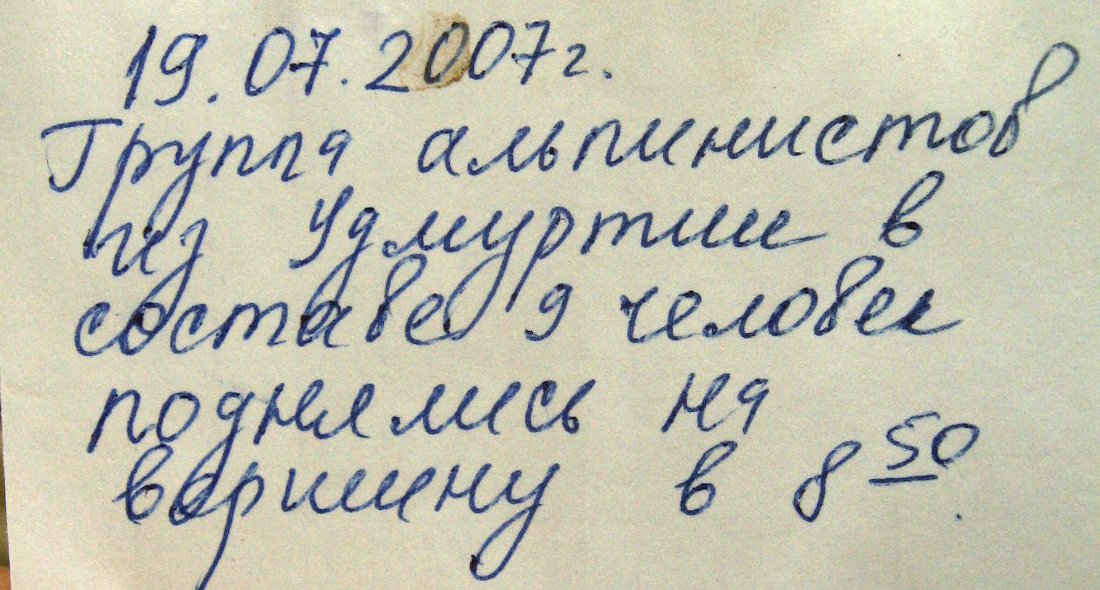 19.07.2007г.
Группа альпинистов
из Удмуртии в
составе 9 человек
поднялись на
вершину в 8 50.